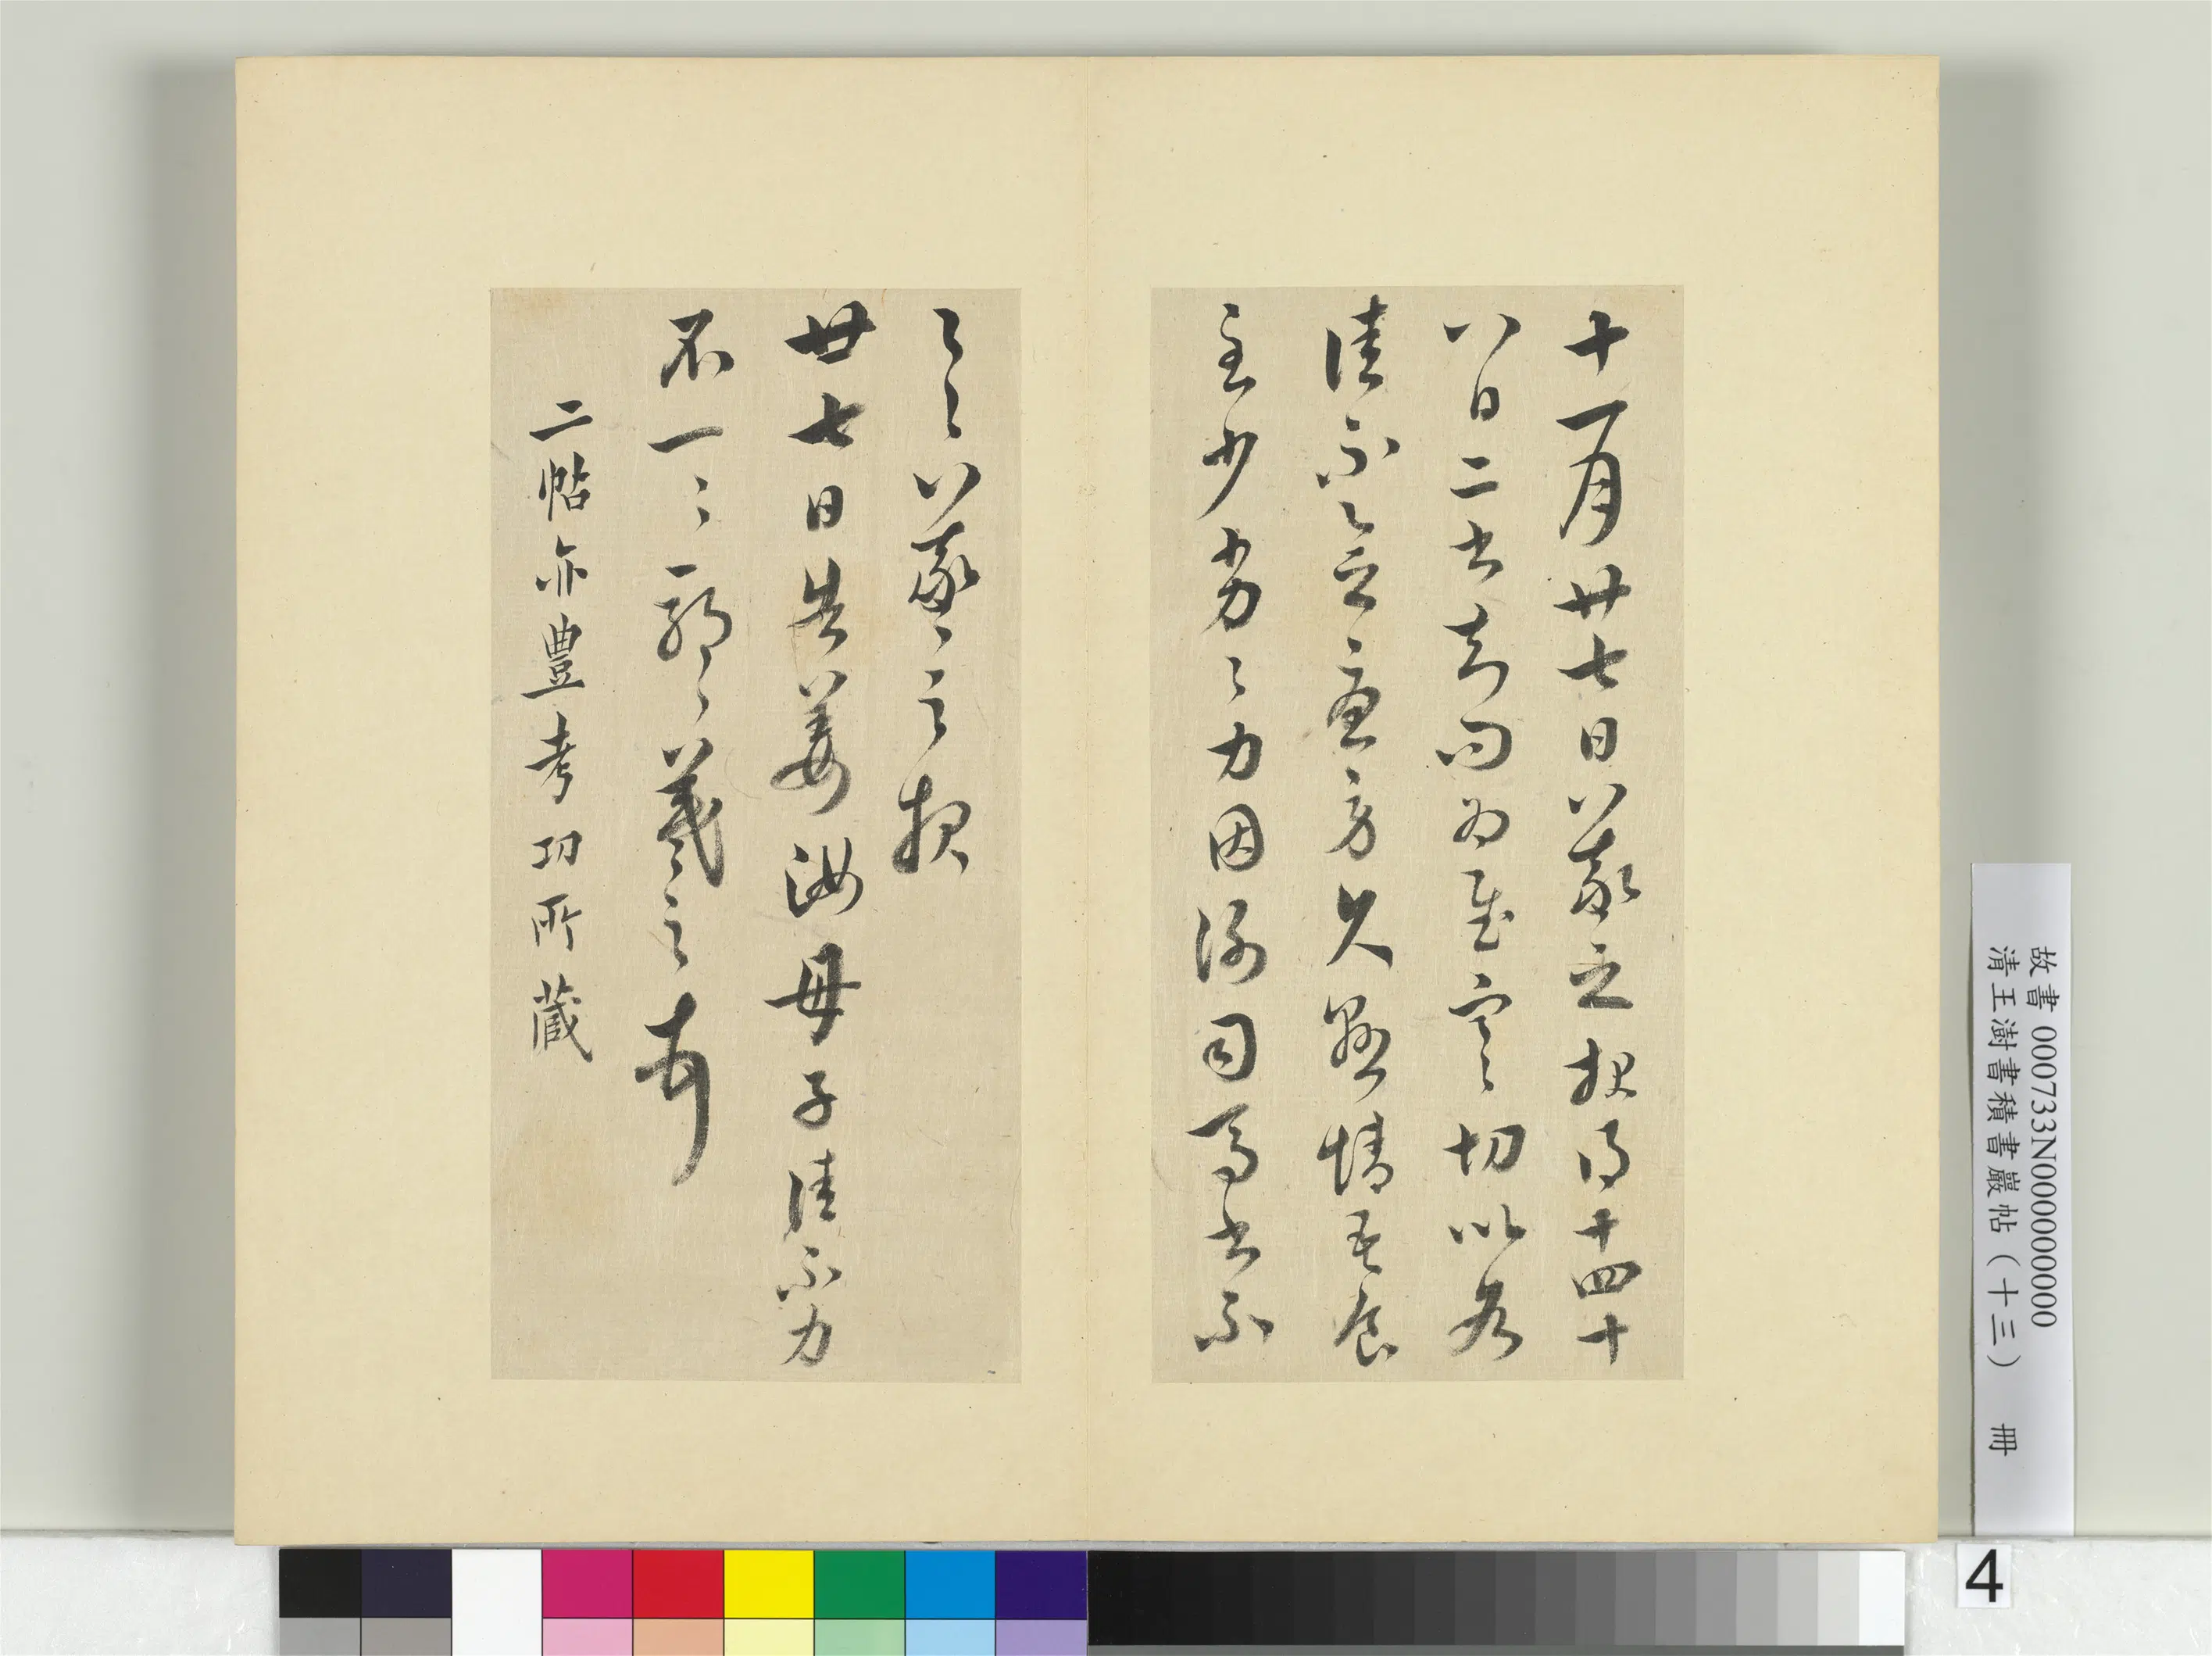 十一月廿七日羲之報得十四十
八日二書知問為慰寒切比各
佳不念憂勞久懸情吾食
至少劣劣力因謝司馬書不
一一羲之報
廿七日告姜汝母子佳不力
不一一耶耶羲之
二帖亦豊考功所藏
故書 000733N000000000
清王澍書積書巖帖（十三） 冊
4